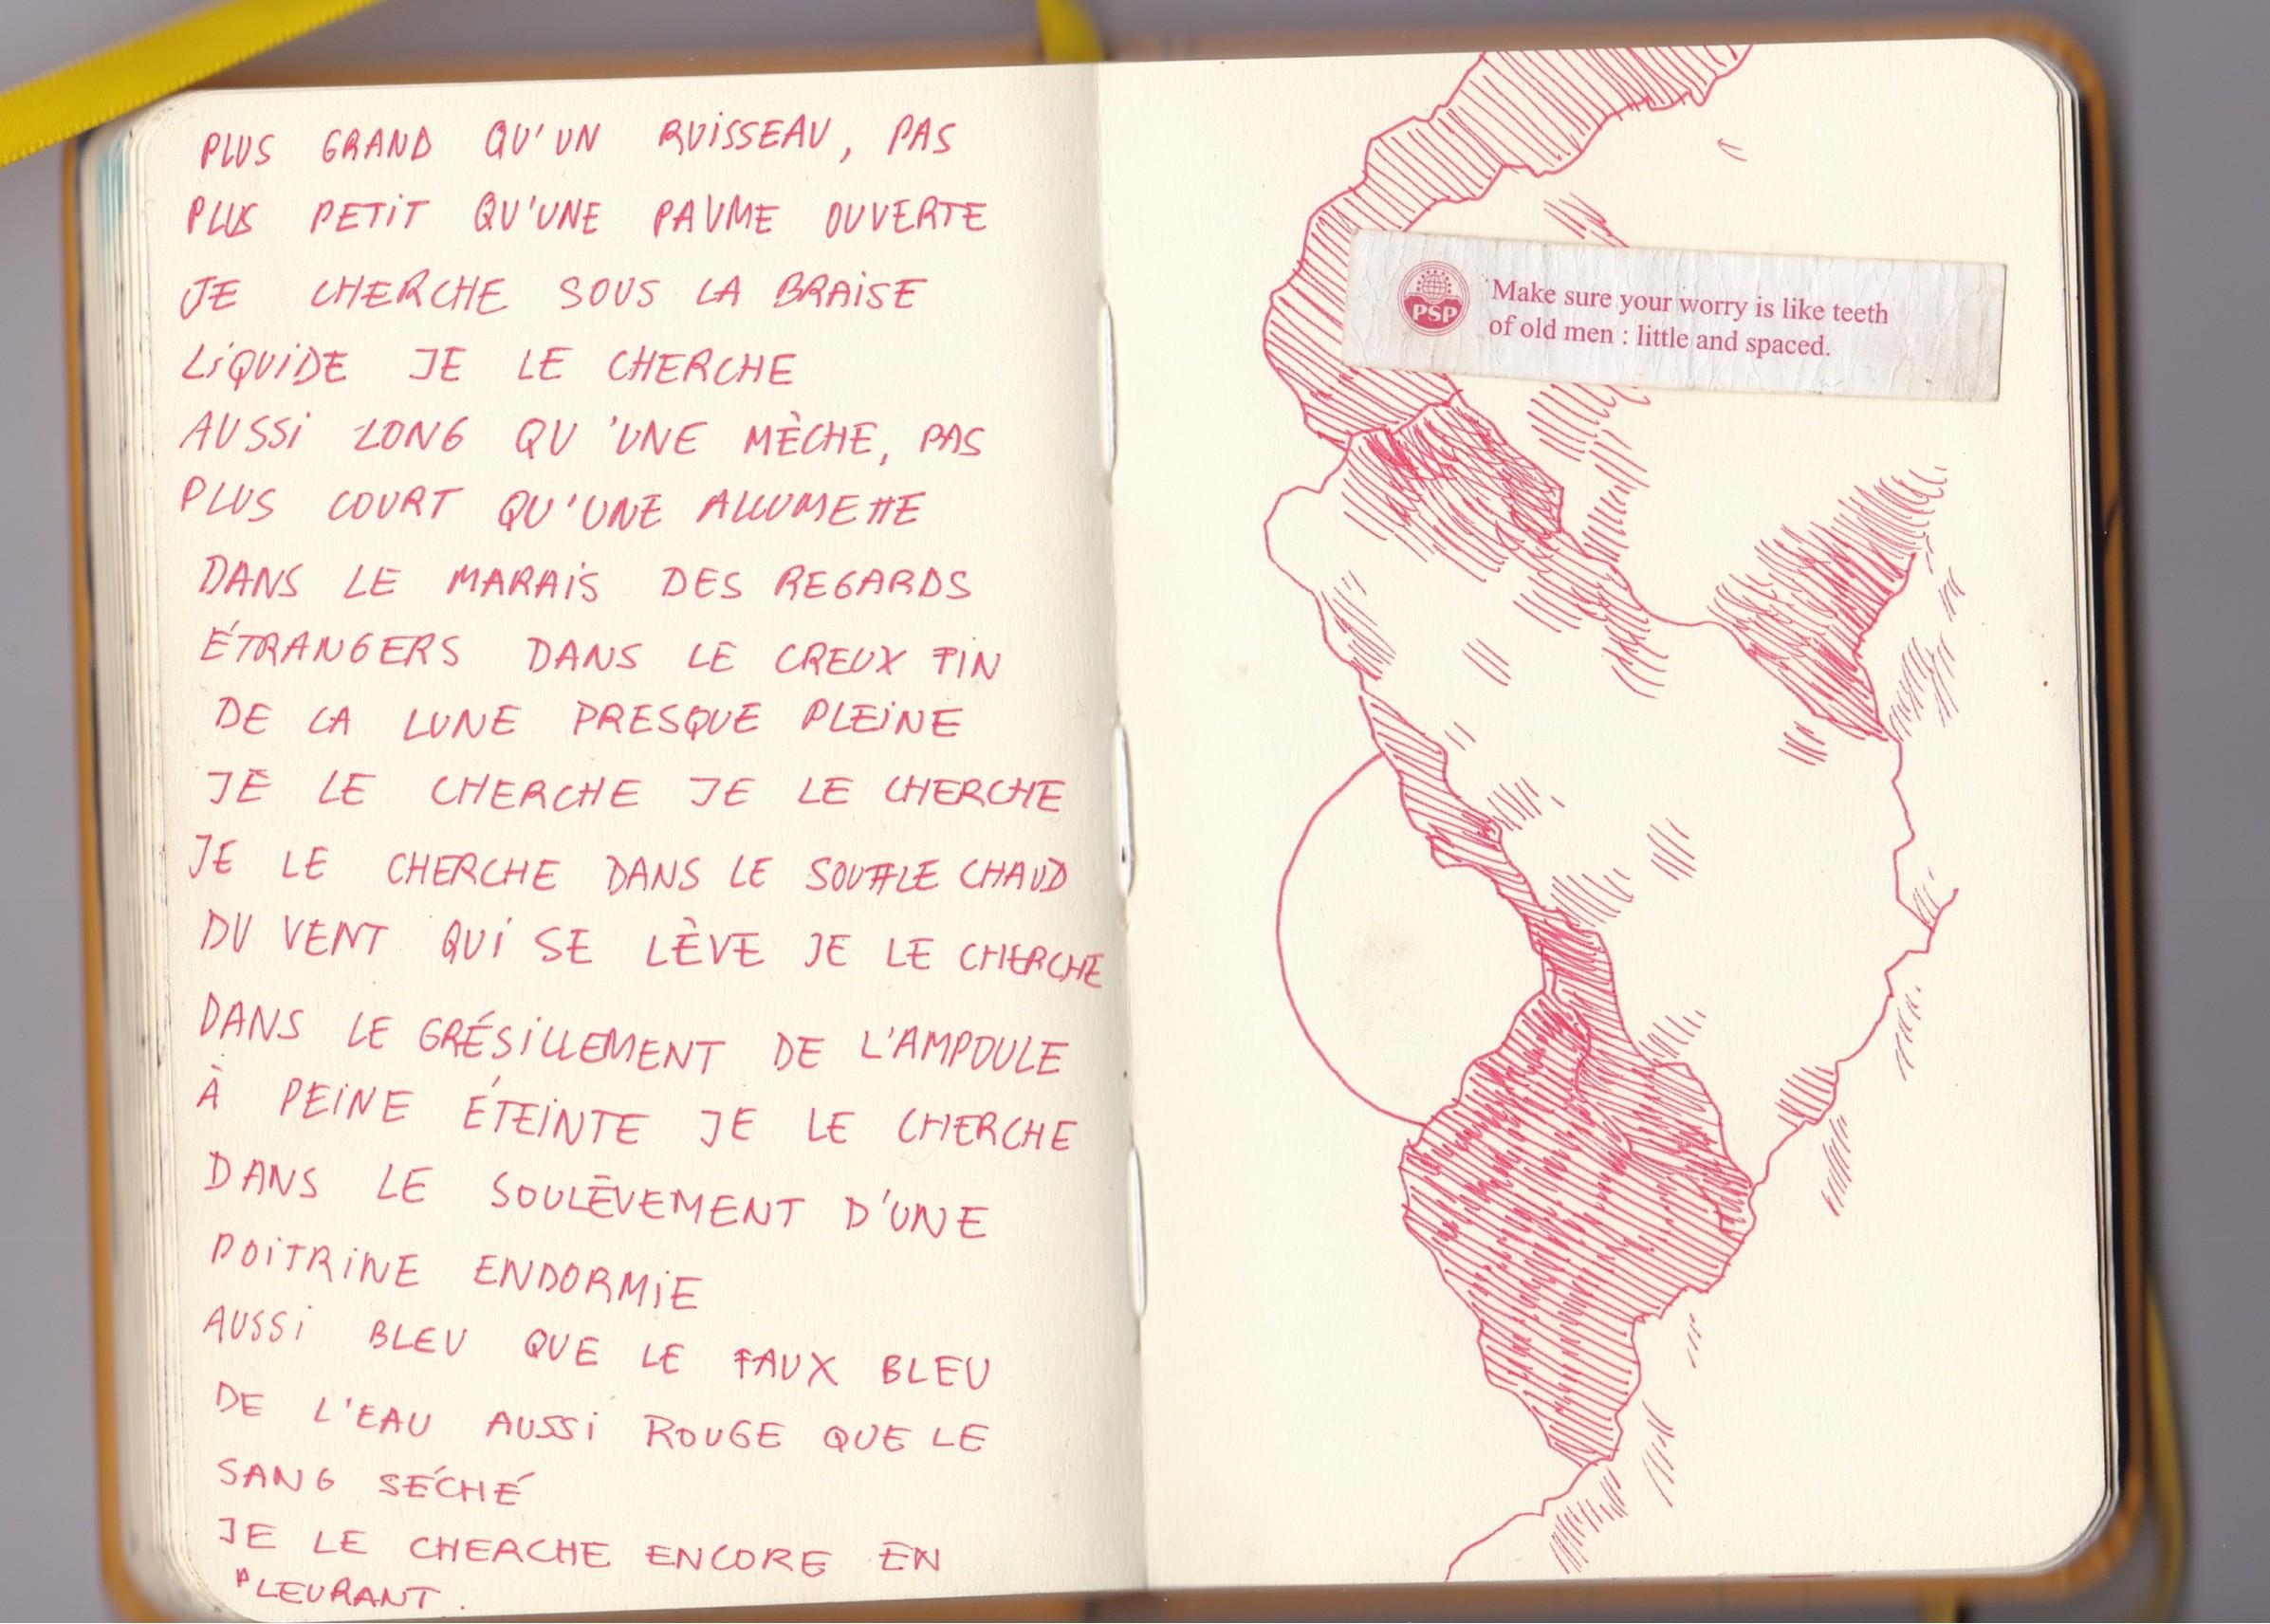 PLUS GRAND QU'UN RUISSEAU, PAS
PLUS PETIT QU'UNE PAUME OUVERTE
JE CHERCHE SOUS LA BRAISE
LIQUIDE JE LE CHERCHE
AUSSI LONG QU'UNE MÈCHE, PAS
PLUS COURT QU'UNE ALLUMETTE
DANS LE MARAIS DES REGARDS
ÉTRANGERS DANS LE CREUX FIN
DE LA LUNE PRESQUE PLEINE
JE LE CHERCHE JE LE CHERCHE
JE LE CHERCHE DANS LE SOUFFLE CHAUD
DU VENT QUI SE LÈVE JE LE CHERCHE
DANS LE GRÉSILLEMENT DE L'AMPOULE
À PEINE ÉTEINTE JE LE CHERCHE
DANS LE SOULÈVEMENT D'UNE
POITRINE ENDORMIE
AUSSI BLEU QUE LE FAUX BLEU
DE L'EAU AUSSI ROUGE QUE LE
SANG SÉCHÉ
JE LE CHERCHE ENCORE EN
PLEURANT.
PSP
Make sure your worry is like teeth
of old men : little and spaced.